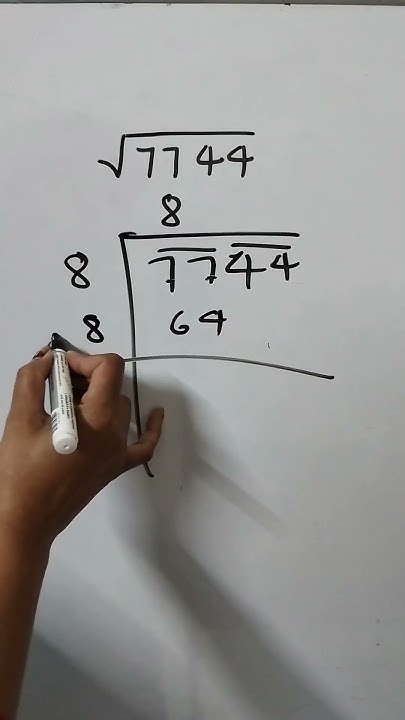 √7744
8
8 7744
8 64